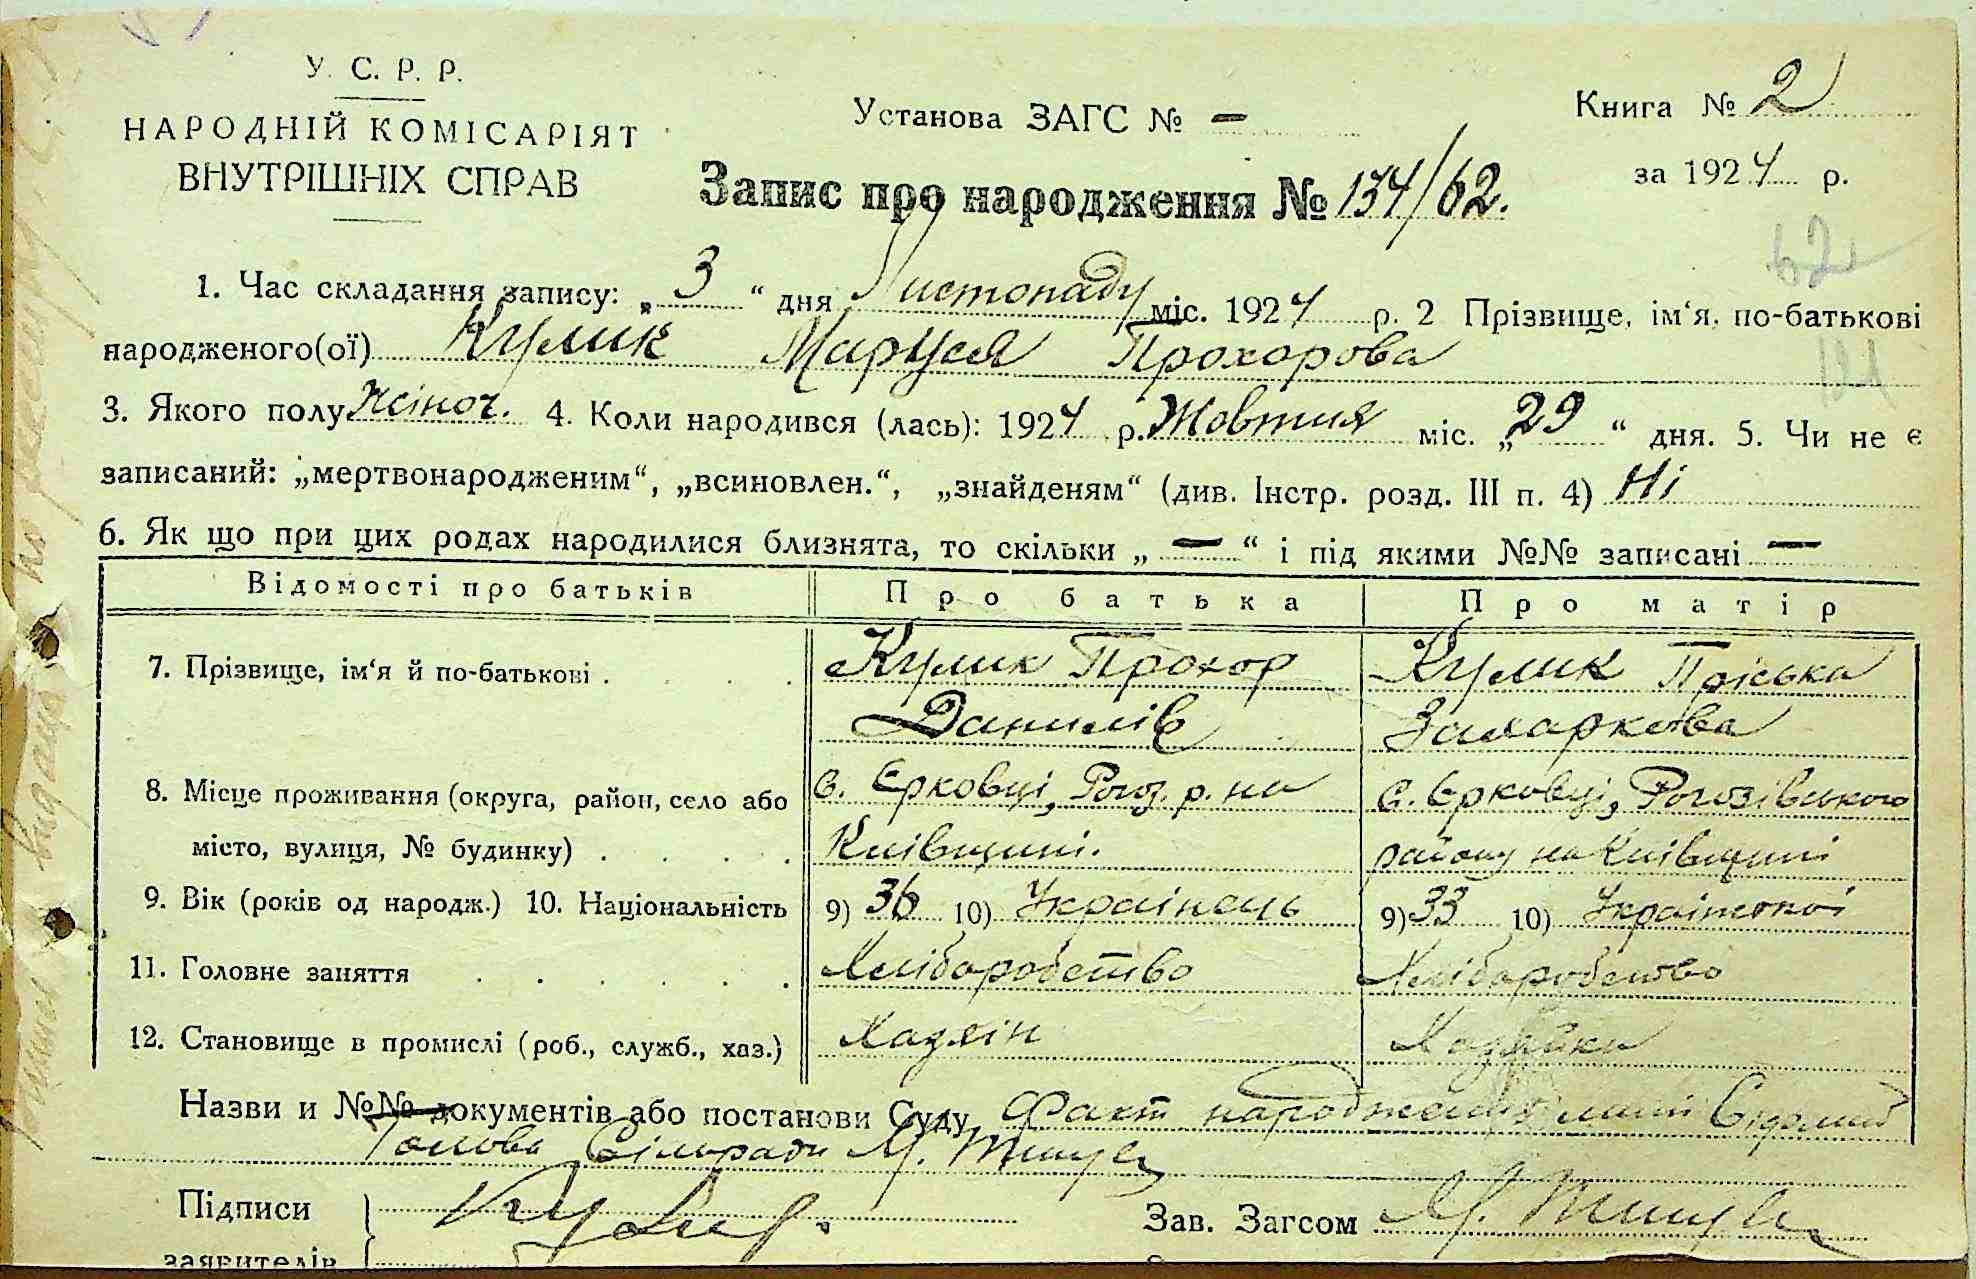 У. С. Р. Р.
НАРОДНІЙ КОМІСАРІЯТ
ВНУТРІШНІХ СПРАВ
Установа ЗАГС № —
Книга № 2
за 1924 р.
Запис про народження № 134/62.
62
1. Час складання запису: „3“ дня Листопаду міс. 1924 р. 2 Прізвище, ім‘я, по-батькові
народженого(ої) Кулик Маруся Прохорова
3. Якого полу жіноч. 4. Коли народився (лась): 1924 р. Жовтня міс. „29“ дня. 5. Чи не є
записаний: „мертвонародженим“, „всиновлен.“, „знайденям“ (див. Інстр. розд. III п. 4) Ні
6. Як що при цих родах народилися близнята, то скільки „—“ і під якими №№ записані —
Відомості про батьків Про батька Про матір
7. Прізвище, ім‘я й по-батькові . . . . Кулик Прохор Кулик Пріська
Данилів Захаркова
8. Місце проживання (округа, район, село або с. Єрковці, Рогоз. р. на с. Єрковці, Рогозівського
місто, вулиця, № будинку) . . . . Київщині. району на Київщині
9. Вік (років од народж.) 10. Національність 9) 36 10) Українець 9) 33 10)
11. Головне заняття . . . . . . Хліборобство Хліборобство
12. Становище в промислі (роб., служб., хаз.) Хазяїн Хазяйка
Назви и №№ документів або постанови Суду Факт народження мині Відомий
Голова Сільради М.
Підписи
Зав. Загсом М.
заявителів